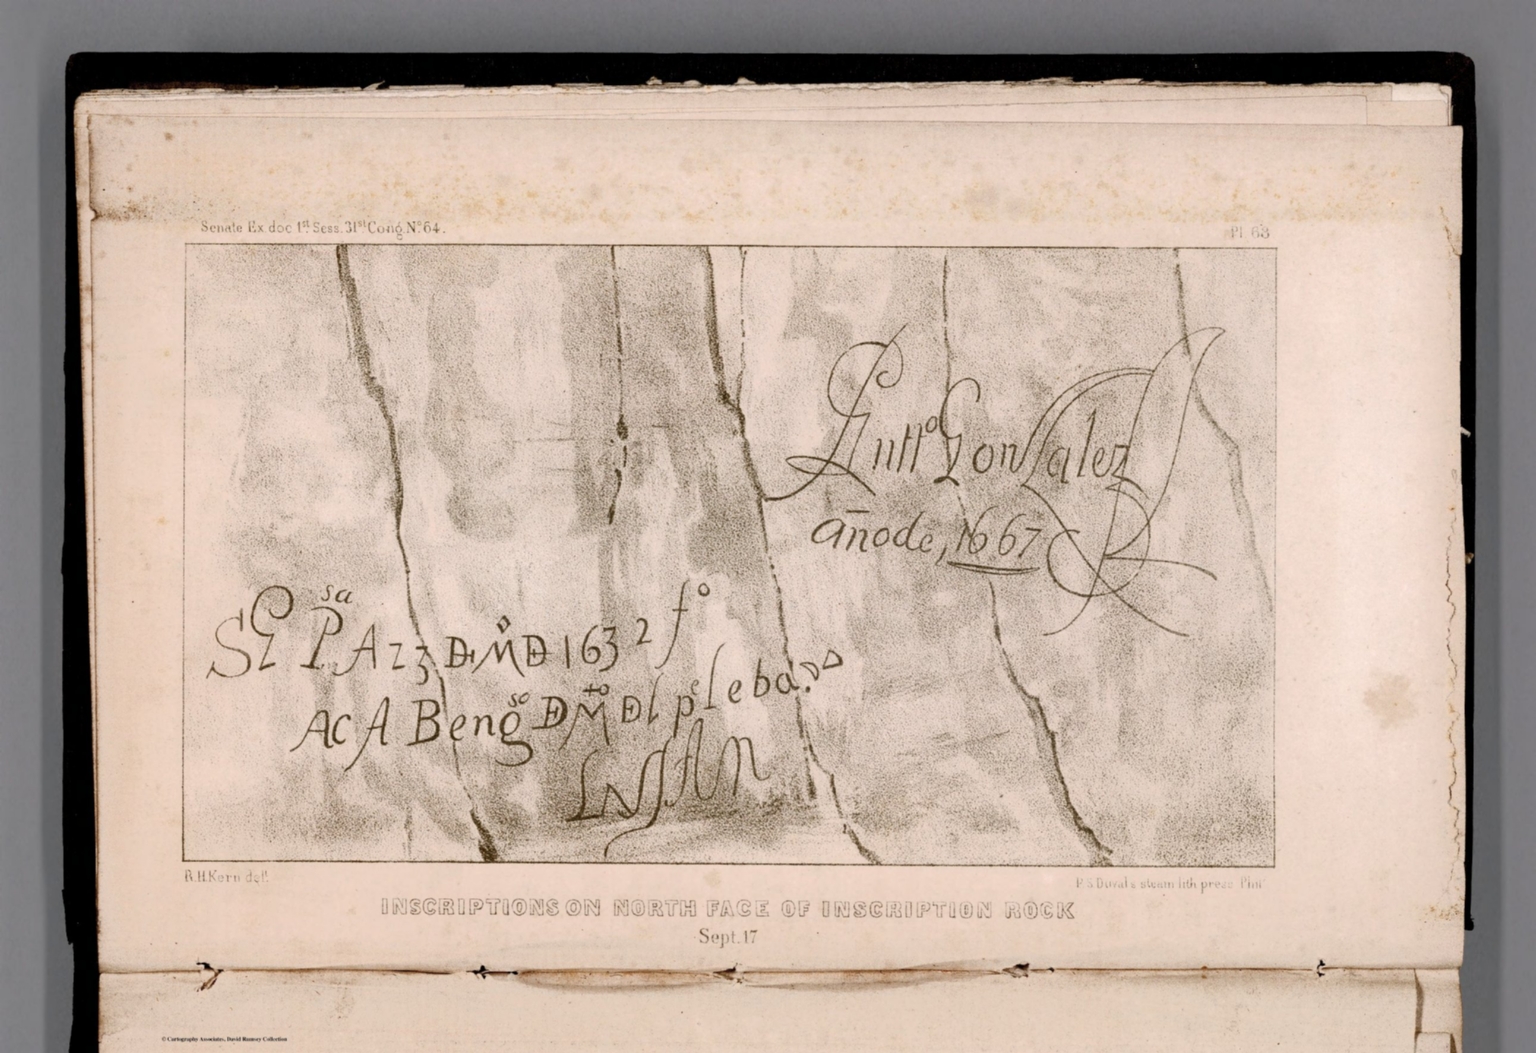 Senate Ex doc 1st Sess. 31st Cong. No. 64.
Pl. 63
Antto Gonsalez
año de, 1667
Se Psa Azz DE Mo DE 1632 fo
AC A Bengso DE Mto DEl pe leba.do
LUJAN
R.H.Kern del.
P.S. Duval's steam lith press Phil
INSCRIPTIONS ON NORTH FACE OF INSCRIPTION ROCK
Sept. 17
© Cartography Associates, David Rumsey Collection